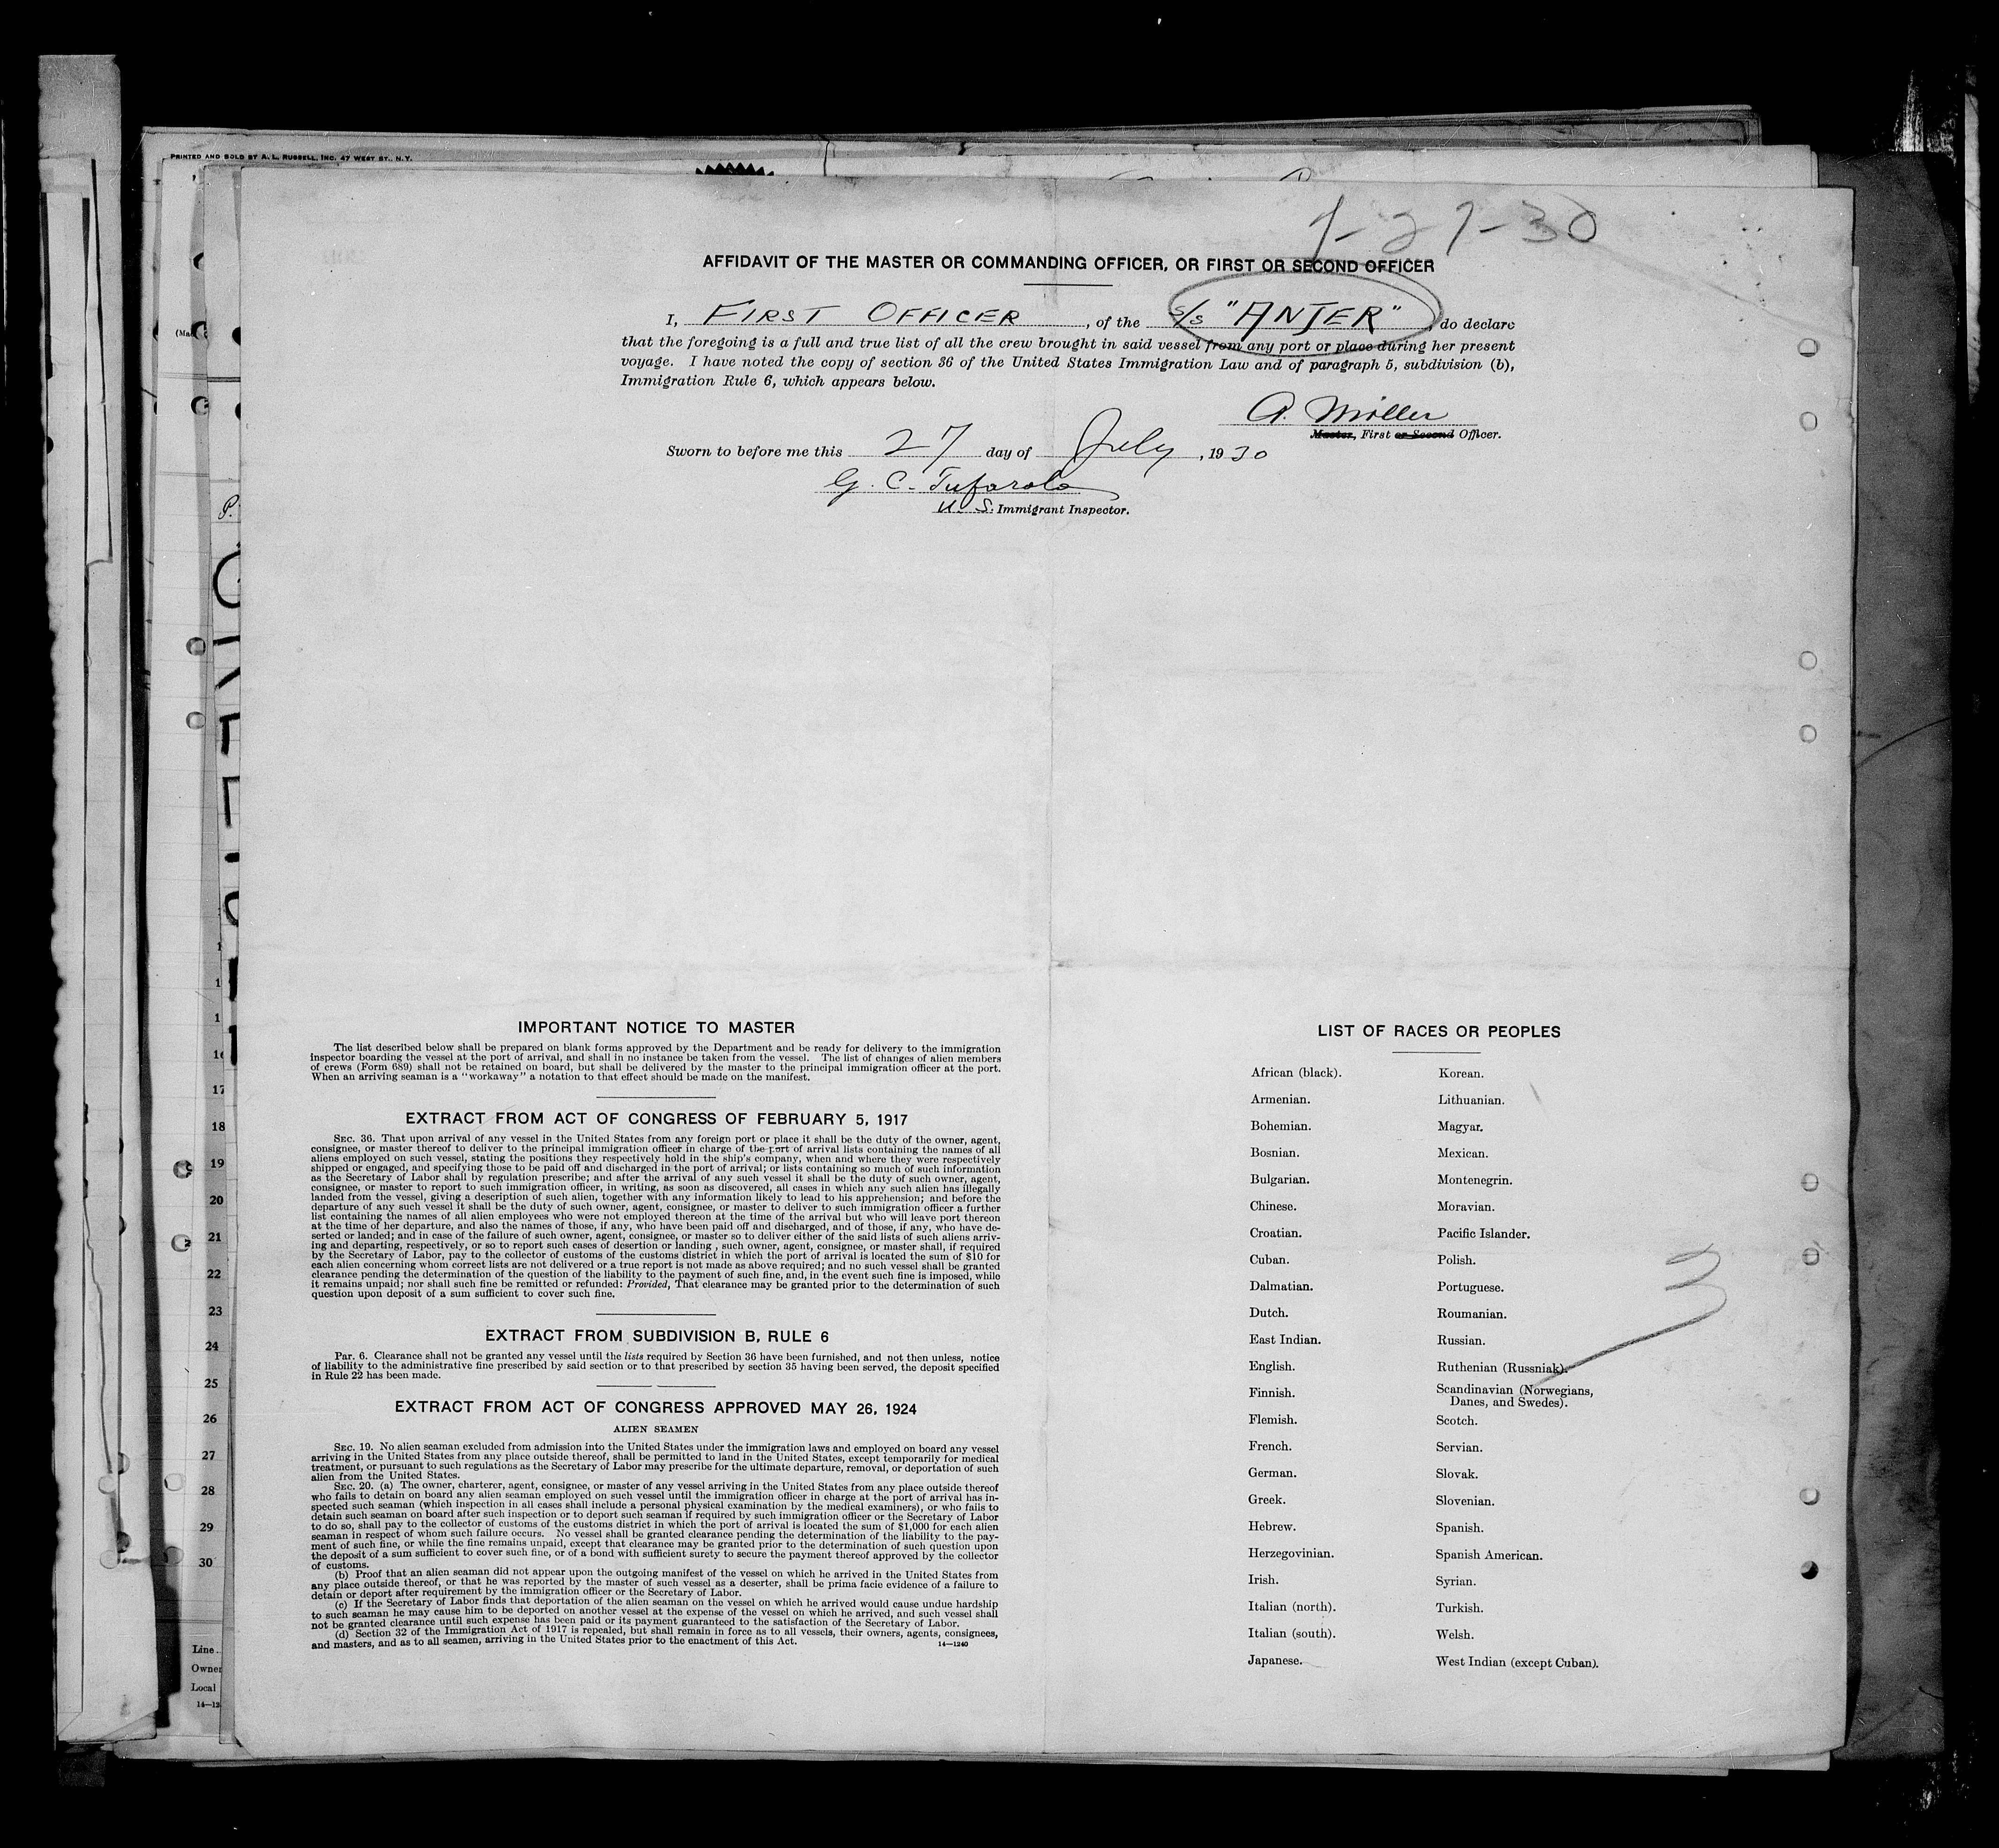 PRINTED AND SOLD BY A. L. RUSSELL, INC. 47 WEST ST., N.Y.
7-27-30
AFFIDAVIT OF THE MASTER OR COMMANDING OFFICER, OR FIRST OR SECOND OFFICER
I, FIRST OFFICER, of the S/S "ANJER", do declare
that the foregoing is a full and true list of all the crew brought in said vessel from any port or place during her present
voyage. I have noted the copy of section 36 of the United States Immigration Law and of paragraph 5, subdivision (b),
Immigration Rule 6, which appears below.
A. Möller
Master, First or Second Officer.
Sworn to before me this 27 day of July, 1930
G. C. Tufarolo
U. S. Immigrant Inspector.
IMPORTANT NOTICE TO MASTER
The list described below shall be prepared on blank forms approved by the Department and be ready for delivery to the immigration
inspector boarding the vessel at the port of arrival, and shall in no instance be taken from the vessel. The list of changes of alien members
of crews (Form 689) shall not be retained on board, but shall be delivered by the master to the principal immigration officer at the port.
When an arriving seaman is a "workaway" a notation to that effect should be made on the manifest.
EXTRACT FROM ACT OF CONGRESS OF FEBRUARY 5, 1917
SEC. 36. That upon arrival of any vessel in the United States from any foreign port or place it shall be the duty of the owner, agent,
consignee, or master thereof to deliver to the principal immigration officer in charge of the port of arrival lists containing the names of all
aliens employed on such vessel, stating the positions they respectively hold in the ship's company, when and where they were respectively
shipped or engaged, and specifying those to be paid off and discharged in the port of arrival; or lists containing so much of such information
as the Secretary of Labor shall by regulation prescribe; and after the arrival of any such vessel it shall be the duty of such owner, agent,
consignee, or master to report to such immigration officer, in writing, as soon as discovered, all cases in which any such alien has illegally
landed from the vessel, giving a description of such alien, together with any information likely to lead to his apprehension; and before the
departure of any such vessel it shall be the duty of such owner, agent, consignee, or master to deliver to such immigration officer a further
list containing the names of all alien employees who were not employed thereon at the time of the arrival but who will leave port thereon
at the time of her departure, and also the names of those, if any, who have been paid off and discharged, and of those, if any, who have de-
serted or landed; and in case of the failure of such owner, agent, consignee, or master so to deliver either of the said lists of such aliens arriv-
ing and departing, respectively, or so to report such cases of desertion or landing, such owner, agent, consignee, or master shall, if required
by the Secretary of Labor, pay to the collector of customs of the customs district in which the port of arrival is located the sum of $10 for
each alien concerning whom correct lists are not delivered or a true report is not made as above required; and no such vessel shall be granted
clearance pending the determination of the question of the liability to the payment of such fine, and, in the event such fine is imposed, while
it remains unpaid; nor shall such fine be remitted or refunded: Provided, That clearance may be granted prior to the determination of such
question upon deposit of a sum sufficient to cover such fine.
EXTRACT FROM SUBDIVISION B, RULE 6
Par. 6. Clearance shall not be granted any vessel until the lists required by Section 36 have been furnished, and not then unless, notice
of liability to the administrative fine prescribed by said section or to that prescribed by section 35 having been served, the deposit specified
in Rule 22 has been made.
EXTRACT FROM ACT OF CONGRESS APPROVED MAY 26, 1924
ALIEN SEAMEN
SEC. 19. No alien seaman excluded from admission into the United States under the immigration laws and employed on board any vessel
arriving in the United States from any place outside thereof, shall be permitted to land in the United States, except temporarily for medical
treatment, or pursuant to such regulations as the Secretary of Labor may prescribe for the ultimate departure, removal, or deportation of such
alien from the United States.
SEC. 20. (a) The owner, charterer, agent, consignee, or master of any vessel arriving in the United States from any place outside thereof
who fails to detain on board any alien seaman employed on such vessel until the immigration officer in charge at the port of arrival has in-
spected such seaman (which inspection in all cases shall include a personal physical examination by the medical examiners), or who fails to
detain such seaman on board after such inspection or to deport such seaman if required by such immigration officer or the Secretary of Labor
to do so, shall pay to the collector of customs of the customs district in which the port of arrival is located the sum of $1,000 for each alien
seaman in respect of whom such failure occurs. No vessel shall be granted clearance pending the determination of the liability to the pay-
ment of such fine, or while the fine remains unpaid, except that clearance may be granted prior to the determination of such question upon
the deposit of a sum sufficient to cover such fine, or of a bond with sufficient surety to secure the payment thereof approved by the collector
of customs.
(b) Proof that an alien seaman did not appear upon the outgoing manifest of the vessel on which he arrived in the United States from
any place outside thereof, or that he was reported by the master of such vessel as a deserter, shall be prima facie evidence of a failure to
detain or deport after requirement by the immigration officer or the Secretary of Labor.
(c) If the Secretary of Labor finds that deportation of the alien seaman on the vessel on which he arrived would cause undue hardship
to such seaman he may cause him to be deported on another vessel at the expense of the vessel on which he arrived, and such vessel shall
not be granted clearance until such expense has been paid or its payment guaranteed to the satisfaction of the Secretary of Labor.
(d) Section 32 of the Immigration Act of 1917 is repealed, but shall remain in force as to all vessels, their owners, agents, consignees,
and masters, and as to all seamen, arriving in the United States prior to the enactment of this Act.
14—1240
LIST OF RACES OR PEOPLES
African (black).
Armenian.
Bohemian.
Bosnian.
Bulgarian.
Chinese.
Croatian.
Cuban.
Dalmatian.
Dutch.
East Indian.
English.
Finnish.
Flemish.
French.
German.
Greek.
Hebrew.
Herzegovinian.
Irish.
Italian (north).
Italian (south).
Japanese.
Korean.
Lithuanian.
Magyar.
Mexican.
Montenegrin.
Moravian.
Pacific Islander.
Polish.
Portuguese.
Roumanian.
Russian.
Ruthenian (Russniak).
Scandinavian (Norwegians,
Danes, and Swedes).
Scotch.
Servian.
Slovak.
Slovenian.
Spanish.
Spanish American.
Syrian.
Turkish.
Welsh.
West Indian (except Cuban).
3
17
18
19
20
21
22
23
24
25
26
27
28
29
30
Line
Owner
Local